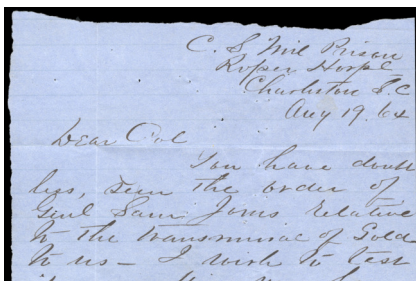 C. S Mil Prison
Roper Hospl
Charleston S. C
Aug 19. 64
Dear Col
You have doubt
less, seen the order of
Genl Sam Jones relative
to the transmission of Gold
to us — I wish to test